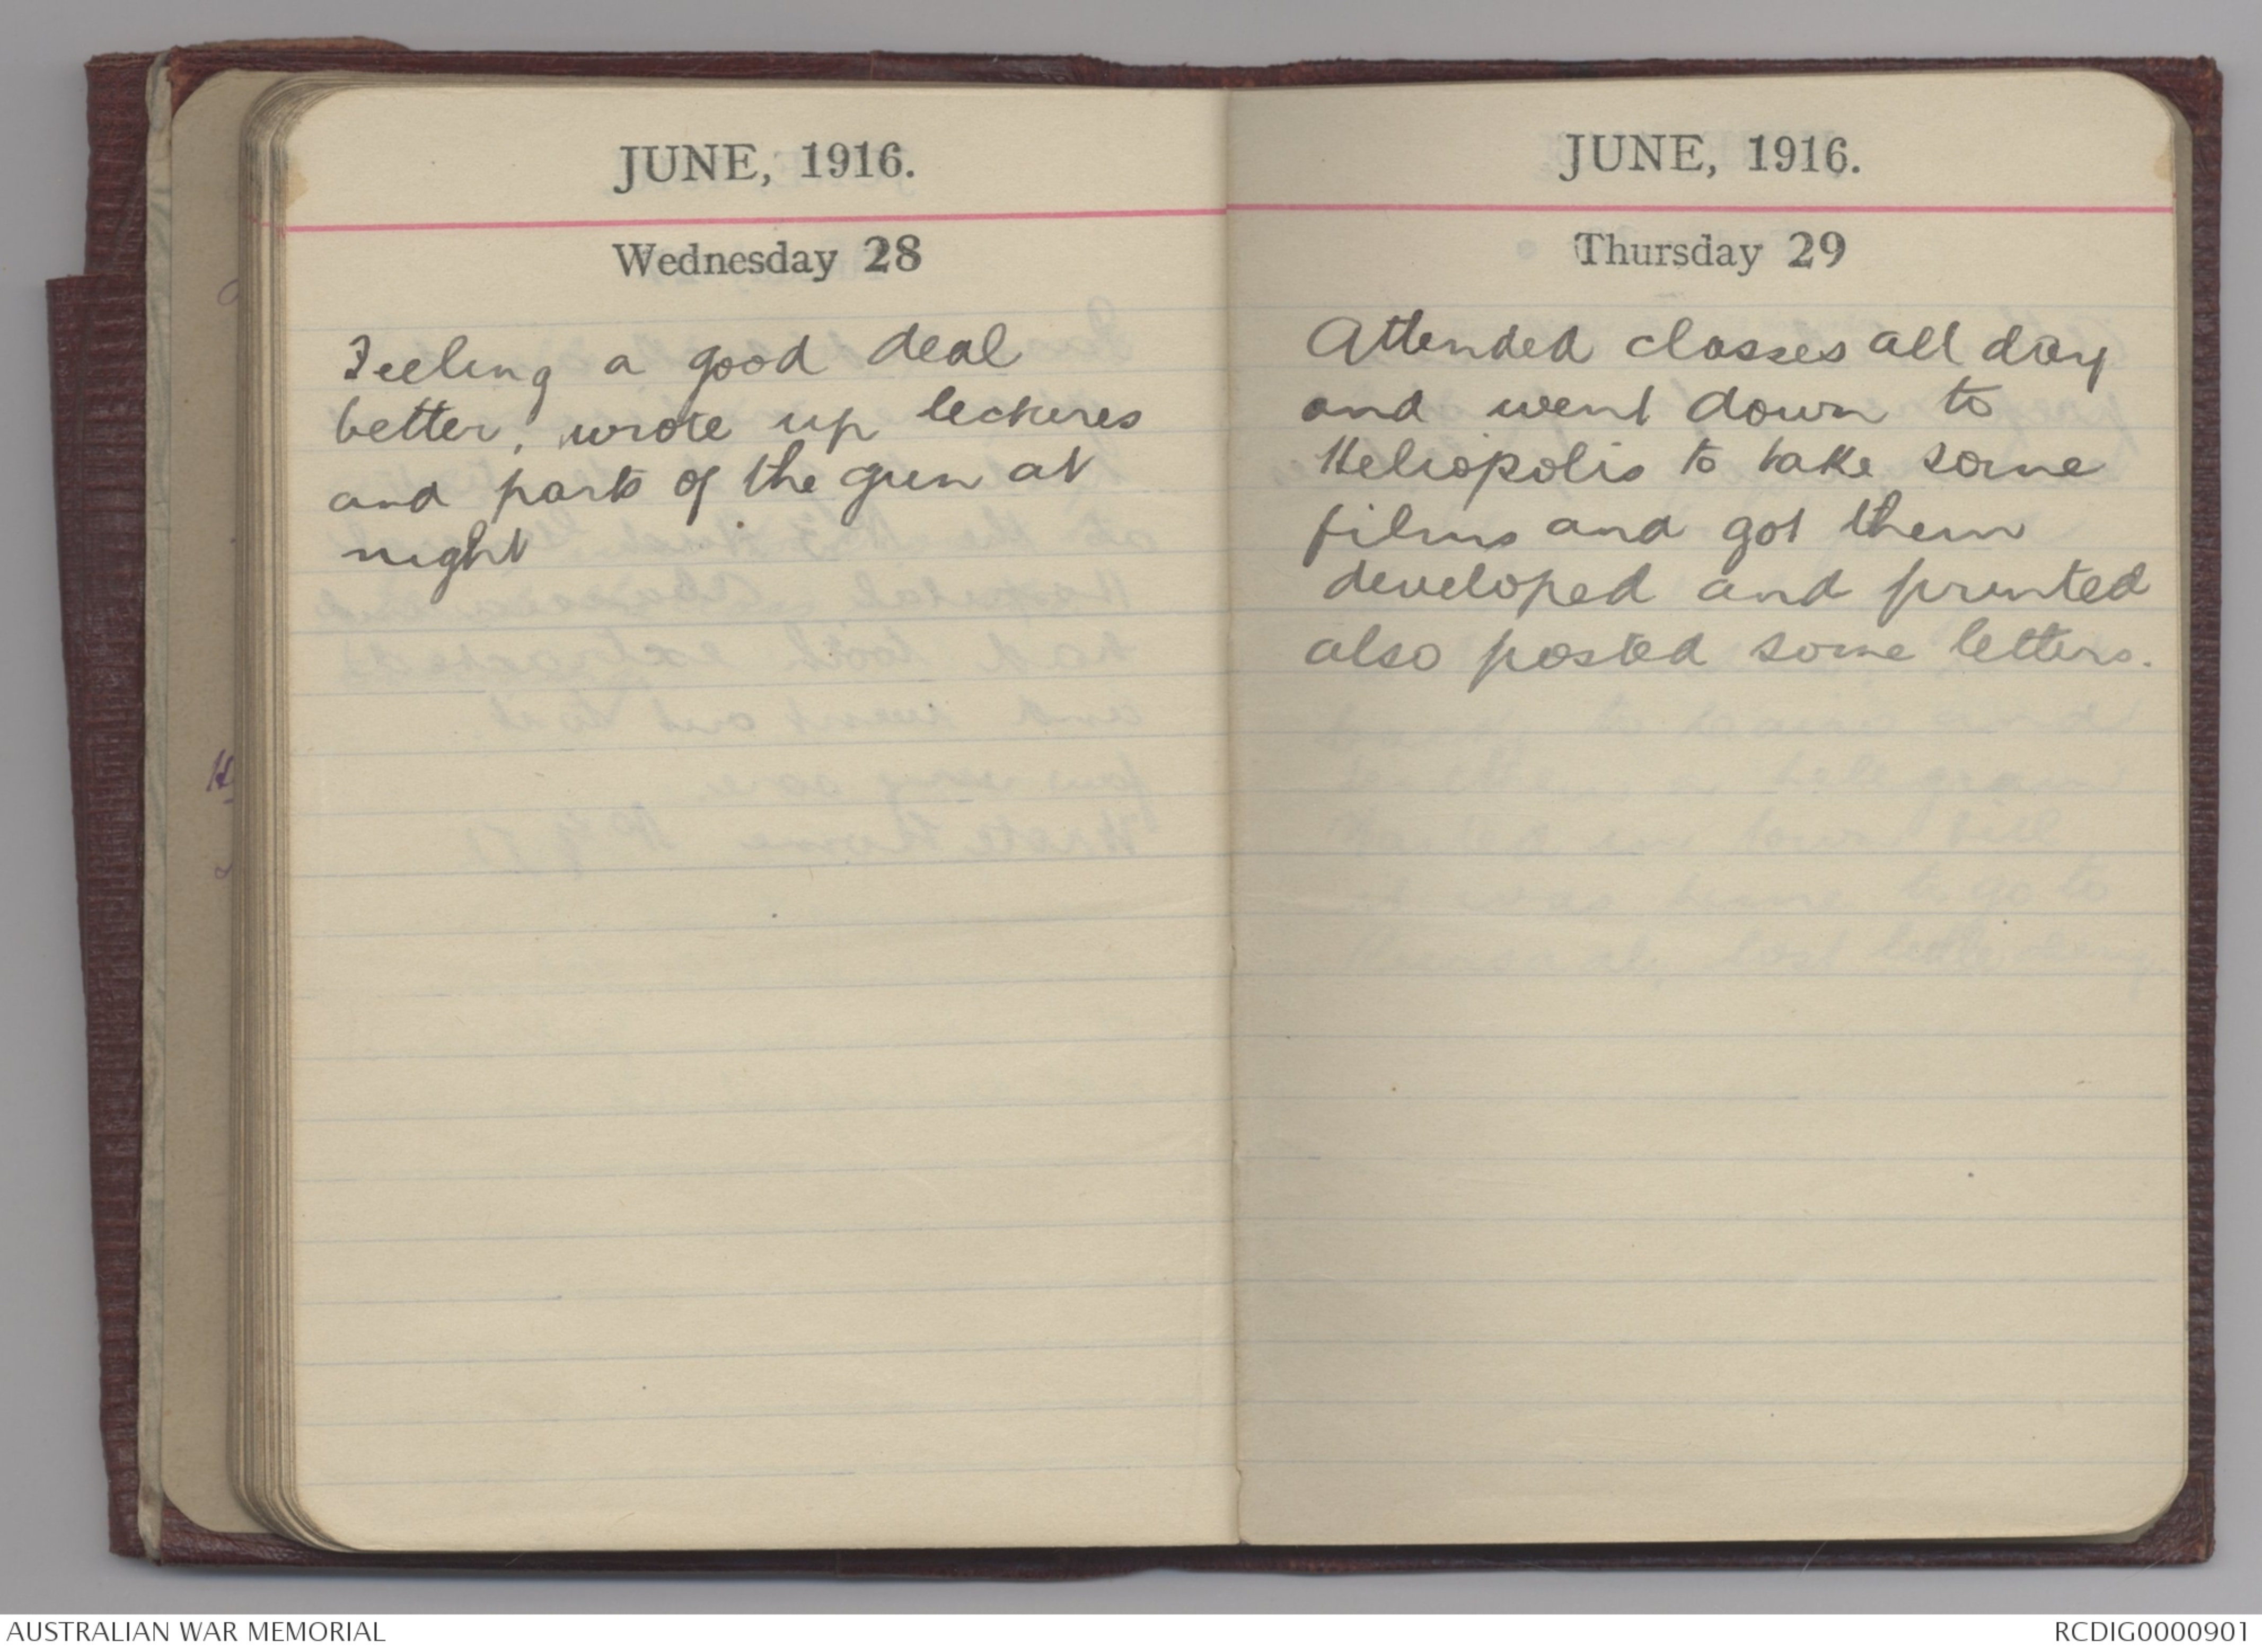 JUNE, 1916.
Wednesday 28
Feeling a good deal
better, wrote up lectures
and parts of the gun at
night
JUNE, 1916.
Thursday 29
Attended classes all day
and went down to
Heliopolis to take some
films and got them
developed and printed
also posted some letters.
AUSTRALIAN WAR MEMORIAL
RCDIG0000901